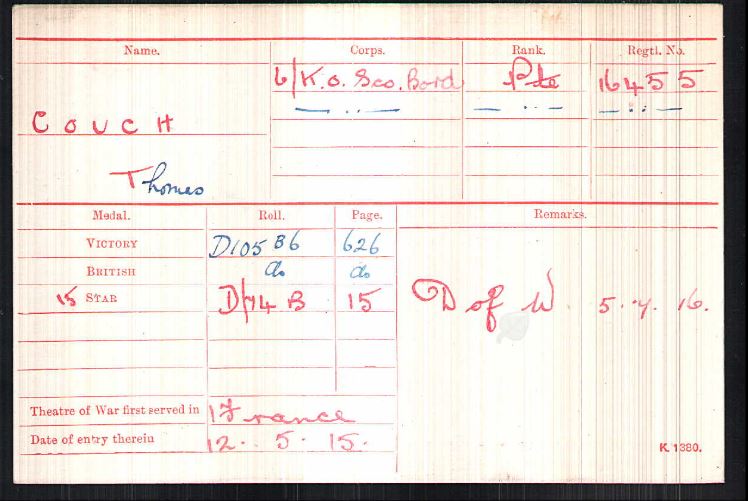 Name. Corps. Rank. Regtl. No.
6/K.O. Sco. Bord Pte 16455
— .. — — .. — — .. —
COUCH
Thomas
Medal. Roll. Page. Remarks.
VICTORY D/105 B6 626
BRITISH do do
15 STAR D/74 B 15 D of W 5.7.16.
Theatre of War first served in (1) France
Date of entry therein 12. 5. 15.
K. 1380.